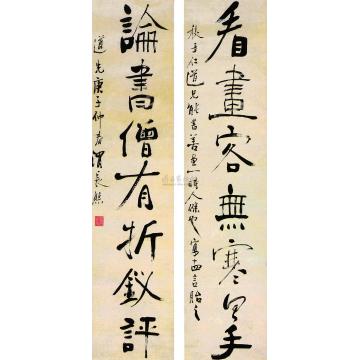 看畫客無寒具手
仁道兄能書善畫一時人傑也寫十四言貽之
論書僧有折釵評
道光庚子仲春渭長熊